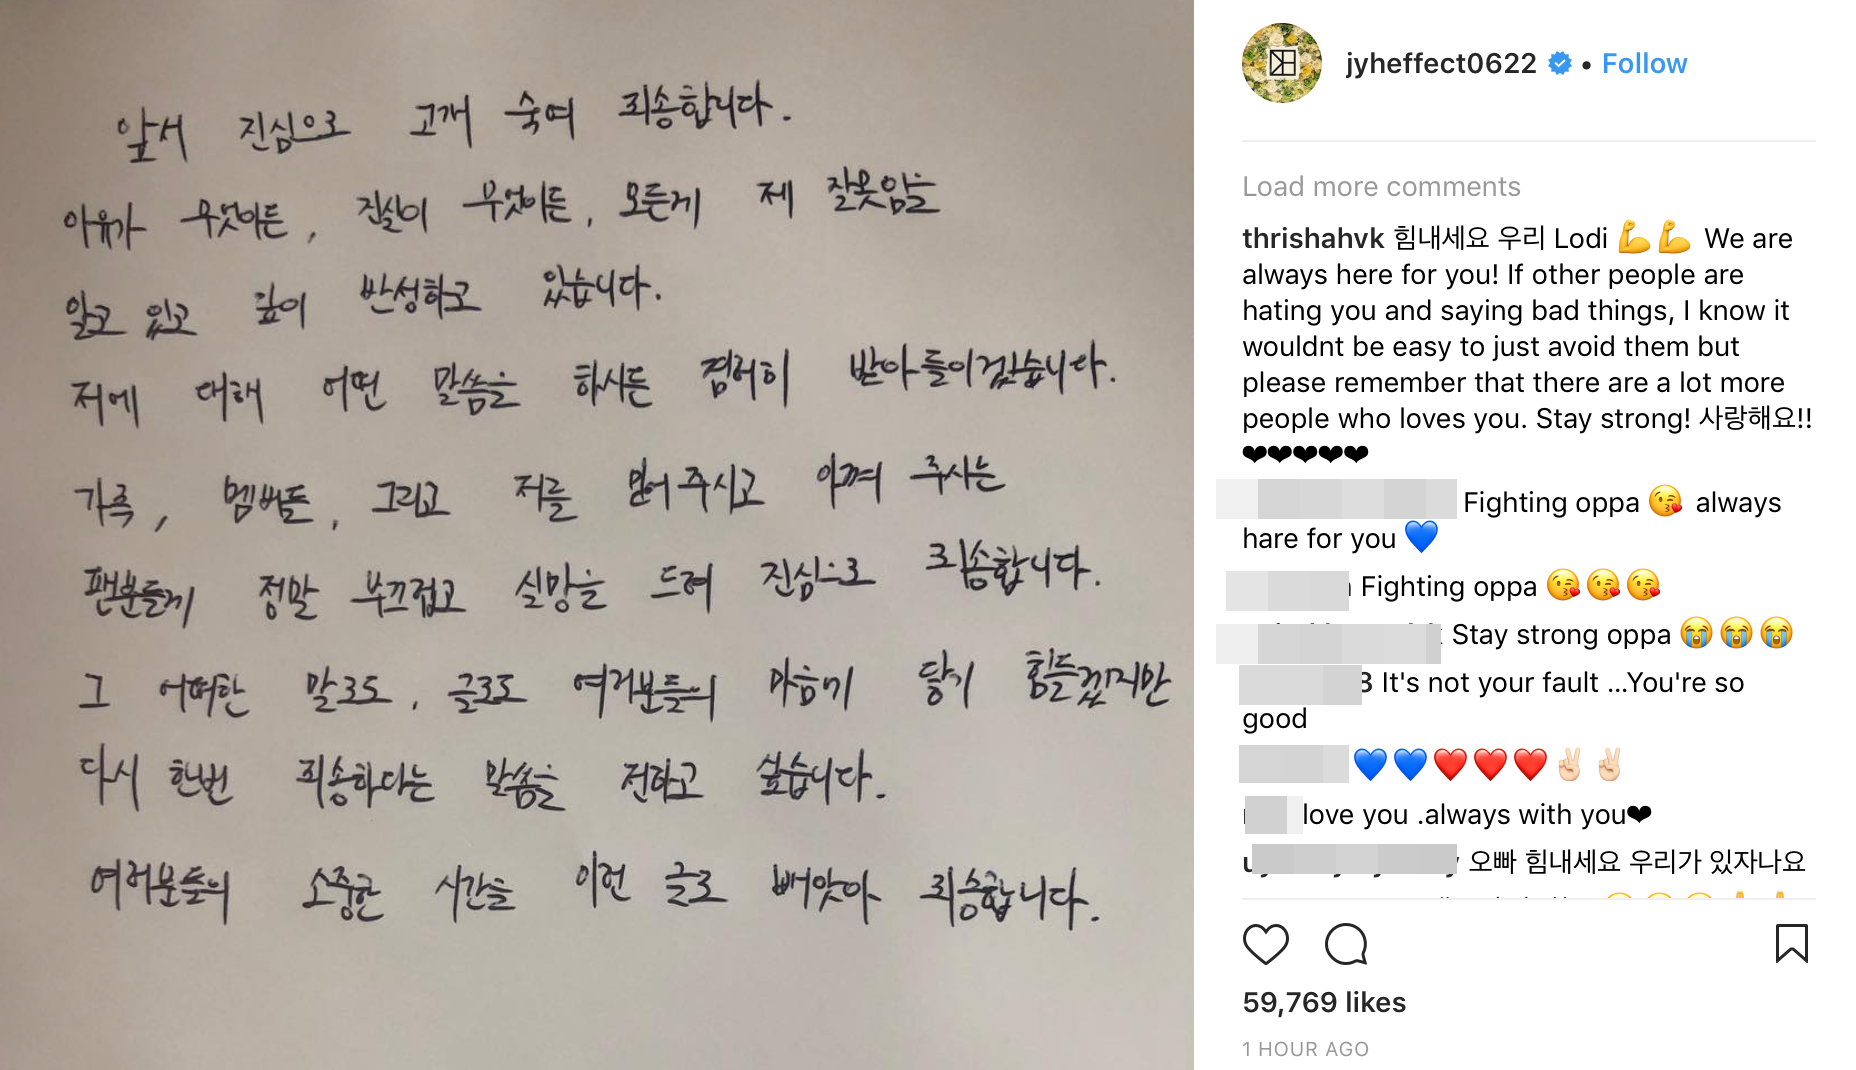 앞서 진심으로 고개 숙여 죄송합니다.
이유가 무엇이든, 진실이 무엇이든, 모든게 제 잘못임을
알고 있고 깊이 반성하고 있습니다.
저에 대해 어떤 말씀을 하시든 겸허히 받아들이겠습니다.
가족, 멤버들, 그리고 저를 믿어주시고 아껴 주시는
팬분들께 정말 부끄럽고 실망을 드려 진심으로 죄송합니다.
그 어떠한 말로도, 글로도 여러분들의 마음에 닿기 힘들겠지만
다시 한번 죄송하다는 말씀을 전하고 싶습니다.
여러분들의 소중한 시간을 이런 글로 빼앗아 죄송합니다.
jyheffect0622 • Follow
Load more comments
thrishahvk 힘내세요 우리 Lodi 💪💪 We are
always here for you! If other people are
hating you and saying bad things, I know it
wouldnt be easy to just avoid them but
please remember that there are a lot more
people who loves you. Stay strong! 사랑해요!!
❤❤❤❤❤
Fighting oppa 😘 always
hare for you 💙
Fighting oppa 😘😘😘
Stay strong oppa 😭😭😭
3 It's not your fault ...You're so
good
💙💙❤️❤️❤️✌🏻✌🏻
love you .always with you❤
오빠 힘내세요 우리가 있자나요
59,769 likes
1 HOUR AGO